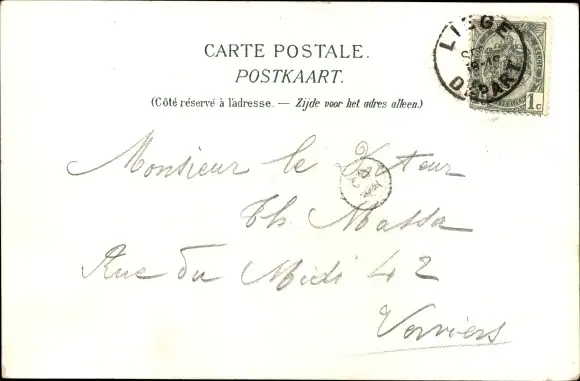 CARTE POSTALE.
POSTKAART.
(Côté réservé à l'adresse. — Zijde voor het adres alleen.)
LIEGE
DEPART
1c
Monsieur le Docteur
Th. Massa
Rue du Midi 42
Verviers